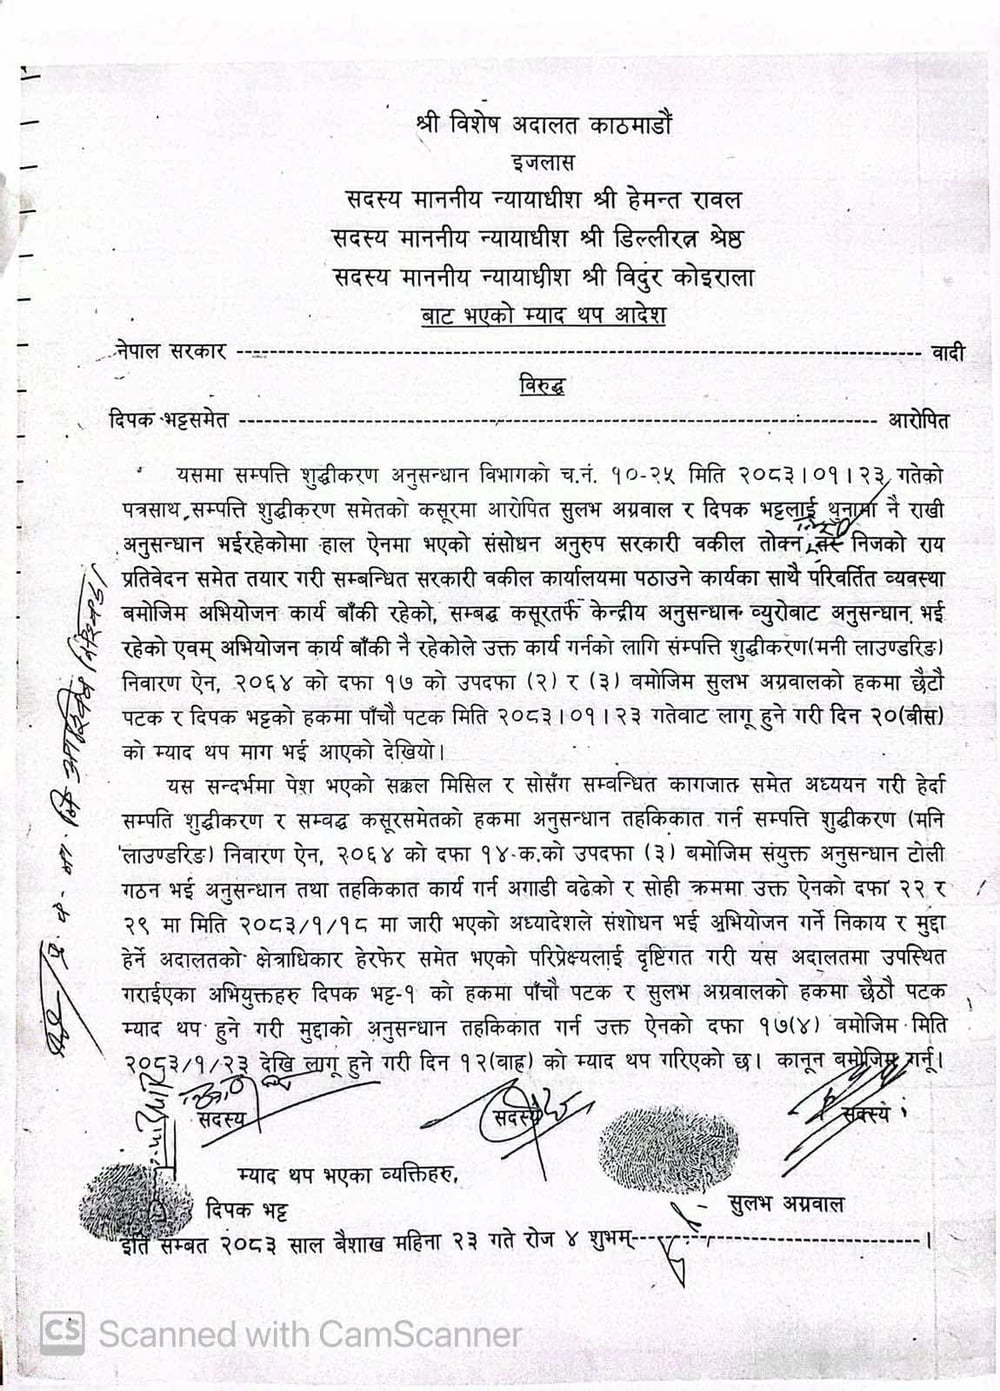 श्री विशेष अदालत काठमाडौं
इजलास
सदस्य माननीय न्यायाधीश श्री हेमन्त रावल
सदस्य माननीय न्यायाधीश श्री डिल्लीरत्न श्रेष्ठ
सदस्य माननीय न्यायाधीश श्री विदुर कोइराला
बाट भएको म्याद थप आदेश
नेपाल सरकार ---------- वादी
विरुद्ध
दिपक भट्टसमेत ---------- आरोपित
यसमा सम्पत्ति शुद्धीकरण अनुसन्धान विभागको च.नं. १०-२५ मिति २०८३।०१।२३ गतेको
पत्रसाथ सम्पत्ति शुद्धीकरण समेतको कसूरमा आरोपित सुलभ अग्रवाल र दिपक भट्टलाई थुनामा नै राखी
अनुसन्धान भईरहेकोमा हाल ऐनमा भएको संसोधन अनुरुप सरकारी वकील तोक्न निजको राय
प्रतिवेदन समेत तयार गरी सम्बन्धित सरकारी वकील कार्यालयमा पठाउने कार्यका साथै परिवर्तित व्यवस्था
बमोजिम अभियोजन कार्य बाँकी रहेको, सम्बद्ध कसूरतर्फ केन्द्रीय अनुसन्धान व्युरोबाट अनुसन्धान भई
रहेको एवम् अभियोजन कार्य बाँकी नै रहेकोले उक्त कार्य गर्नको लागि सम्पत्ति शुद्धीकरण(मनी लाउण्डरिङ)
निवारण ऐन, २०६४ को दफा १७ को उपदफा (२) र (३) वमोजिम सुलभ अग्रवालको हकमा छैटौ
पटक र दिपक भट्टको हकमा पाँचौ पटक मिति २०८३।०१।२३ गतेवाट लागू हुने गरी दिन २०(बीस)
को म्याद थप माग भई आएको देखियो।
यस सन्दर्भमा पेश भएको सक्कल मिसिल र सोसँग सम्वन्धित कागजात समेत अध्ययन गरी हेर्दा
सम्पति शुद्धीकरण र सम्वद्ध कसूरसमेतको हकमा अनुसन्धान तहकिकात गर्न सम्पत्ति शुद्धीकरण (मनि
लाउण्डरिङ) निवारण ऐन, २०६४ को दफा १४ क.को उपदफा (३) बमोजिम संयुक्त अनुसन्धान टोली
गठन भई अनुसन्धान तथा तहकिकात कार्य गर्न अगाडी वढेको र सोही क्रममा उक्त ऐनको दफा २२ र
२९ मा मिति २०८३/१/१८ मा जारी भएको अध्यादेशले संशोधन भई अभियोजन गर्ने निकाय र मुद्दा
हेर्ने अदालतको क्षेत्राधिकार हेरफेर समेत भएको परिप्रेक्ष्यलाई दृष्टिगत गरी यस अदालतमा उपस्थित
गराईएका अभियुक्तहरु दिपक भट्ट-१ को हकमा पाँचौ पटक र सुलभ अग्रवालको हकमा छैठौ पटक
म्याद थप हुने गरी मुद्दाको अनुसन्धान तहकिकात गर्न उक्त ऐनको दफा १७(४) वमोजिम मिति
२०८३/१/२३ देखि लागू हुने गरी दिन १२(बाह्र) को म्याद थप गरिएको छ। कानून बमोजिम गर्नू।
सदस्य सदस्य सदस्य
म्याद थप भएका व्यक्तिहरु,
दिपक भट्ट सुलभ अग्रवाल
इति सम्बत २०८३ साल बैशाख महिना २३ गते रोज ४ शुभम्----------।
CS Scanned with CamScanner